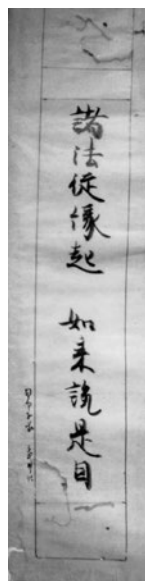 諸法從緣起 如来說是因